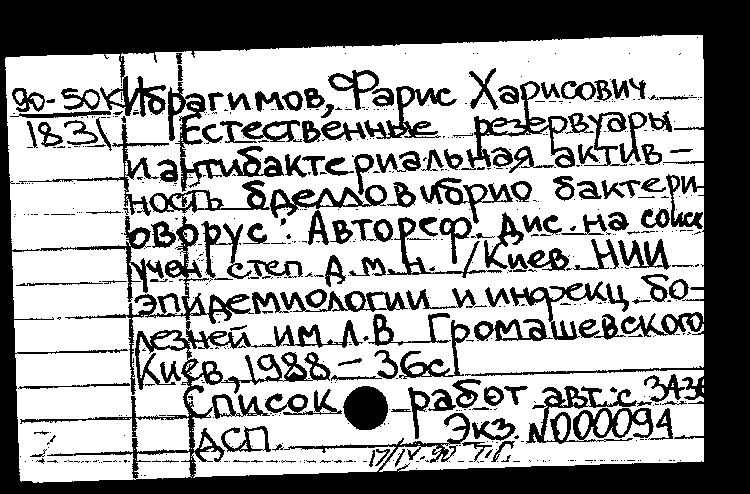 90-50К Ибрагимов, Фарис Харисович
1831 Естественные резервуары
и антибактериальная актив-
ность бделловибрио бактери-
оворус : Автореф. дис. на соиск
учен степ д.м.н. /Киев. НИИ
эпидемиологии и инфекц. бо-
лезней им. Л.В. Громашевского
Киев, 1988 - 36с
Список работ авт.: с. 34-36
ДСП. Экз. №000094
17/IV-90 Т.Г.